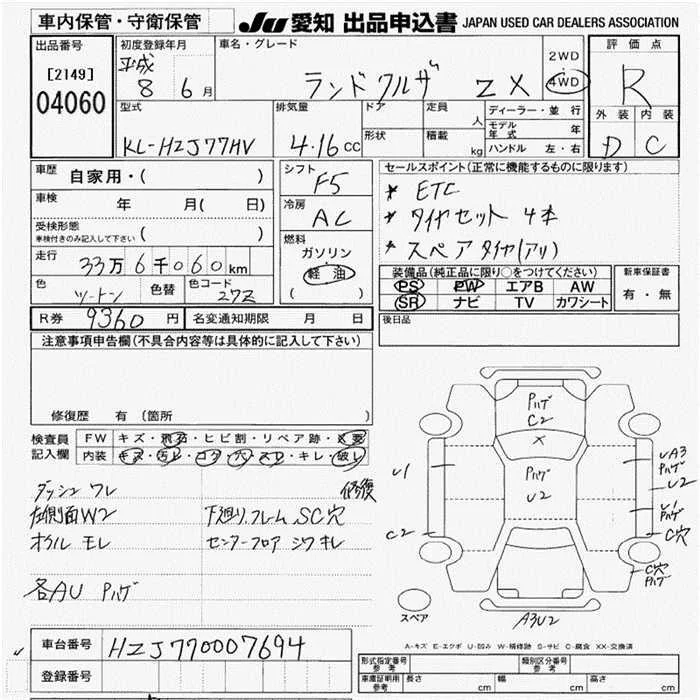 車内保管・守衛保管
JU 愛知 出品申込書 JAPAN USED CAR DEALERS ASSOCIATION
出品番号
[2149]
04060
初度登録年月
平成
8 6月
車名・グレード
ランドクルザ ZX
2WD
4WD
評価点
R
外装 内装
D C
型式
KL-HZJ77HV
排気量
4.16cc
ドア
形状
定員 人
積載 kg
ディーラー・並行
モデル年式 年
ハンドル 左・右
車歴
自家用・( )
車検 年 月( 日)
受検形態
車検付きのみ記入して下さい ( )
走行
33万6千060km
色
ツートン
色替
色コード
27Z
シフト
F5
冷房
AC
燃料
ガソリン
軽油
( )
セールスポイント(正常に機能するものに限ります)
* ETC
* タイヤセット 4本
* スペアタイヤ(アリ)
装備品(純正品に限り○をつけてください)
PS PW エアB AW
SR ナビ TV カワシート
新車保証書
有・無
R券 9360円 名変通知期限 月 日
後日品
注意事項申告欄(不具合内容等は具体的に記入して下さい)
修復歴 有(箇所 )
検査員
記入欄
FW キズ・飛石・ヒビ割・リペア跡・X要
内装 キズ・汚レ・コゲ・穴・スレ・キレ・破レ
ダッシュワレ 修復
左側面W2 下廻り、フレームSC穴
オイルモレ センターフロアシワキレ
各AU Pハゲ
Pハゲ
C2
X
Pハゲ
U2
U1
C2
UA3
Pハゲ
U2
U1
Pハゲ
C穴
C穴
Pハゲ
スペア
A3U2
A-キズ E-エクボ U-凹み W-補修跡 S-サビ C-腐食 XX-交換済
車台番号 HZJ770007694
登録番号
形式指定番号
参考
類別区分番号
参考
車庫証明用
参考
長さ cm 幅 cm 高さ cm